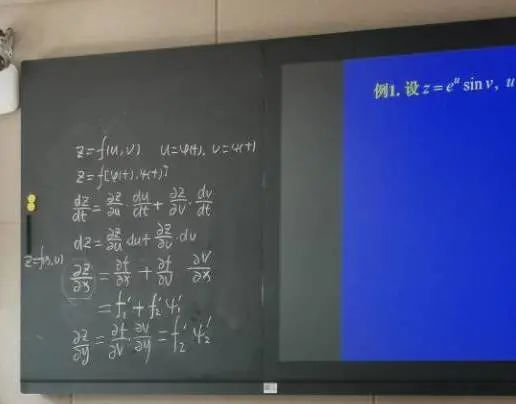 z=f(u,v)  u=φ(t), v=ψ(t)
z=f[φ(t),ψ(t)]
dz/dt = ∂z/∂u · du/dt + ∂z/∂v · dv/dt
dz = ∂z/∂u du + ∂z/∂v dv
∂z/∂x = ∂f/∂x + ∂f/∂v ∂v/∂x
= f₁' + f₂' ψ₁'
∂z/∂y = ∂f/∂v · ∂v/∂y = f₂' ψ₂'
例1. 设 z = eᵘ sin v, u